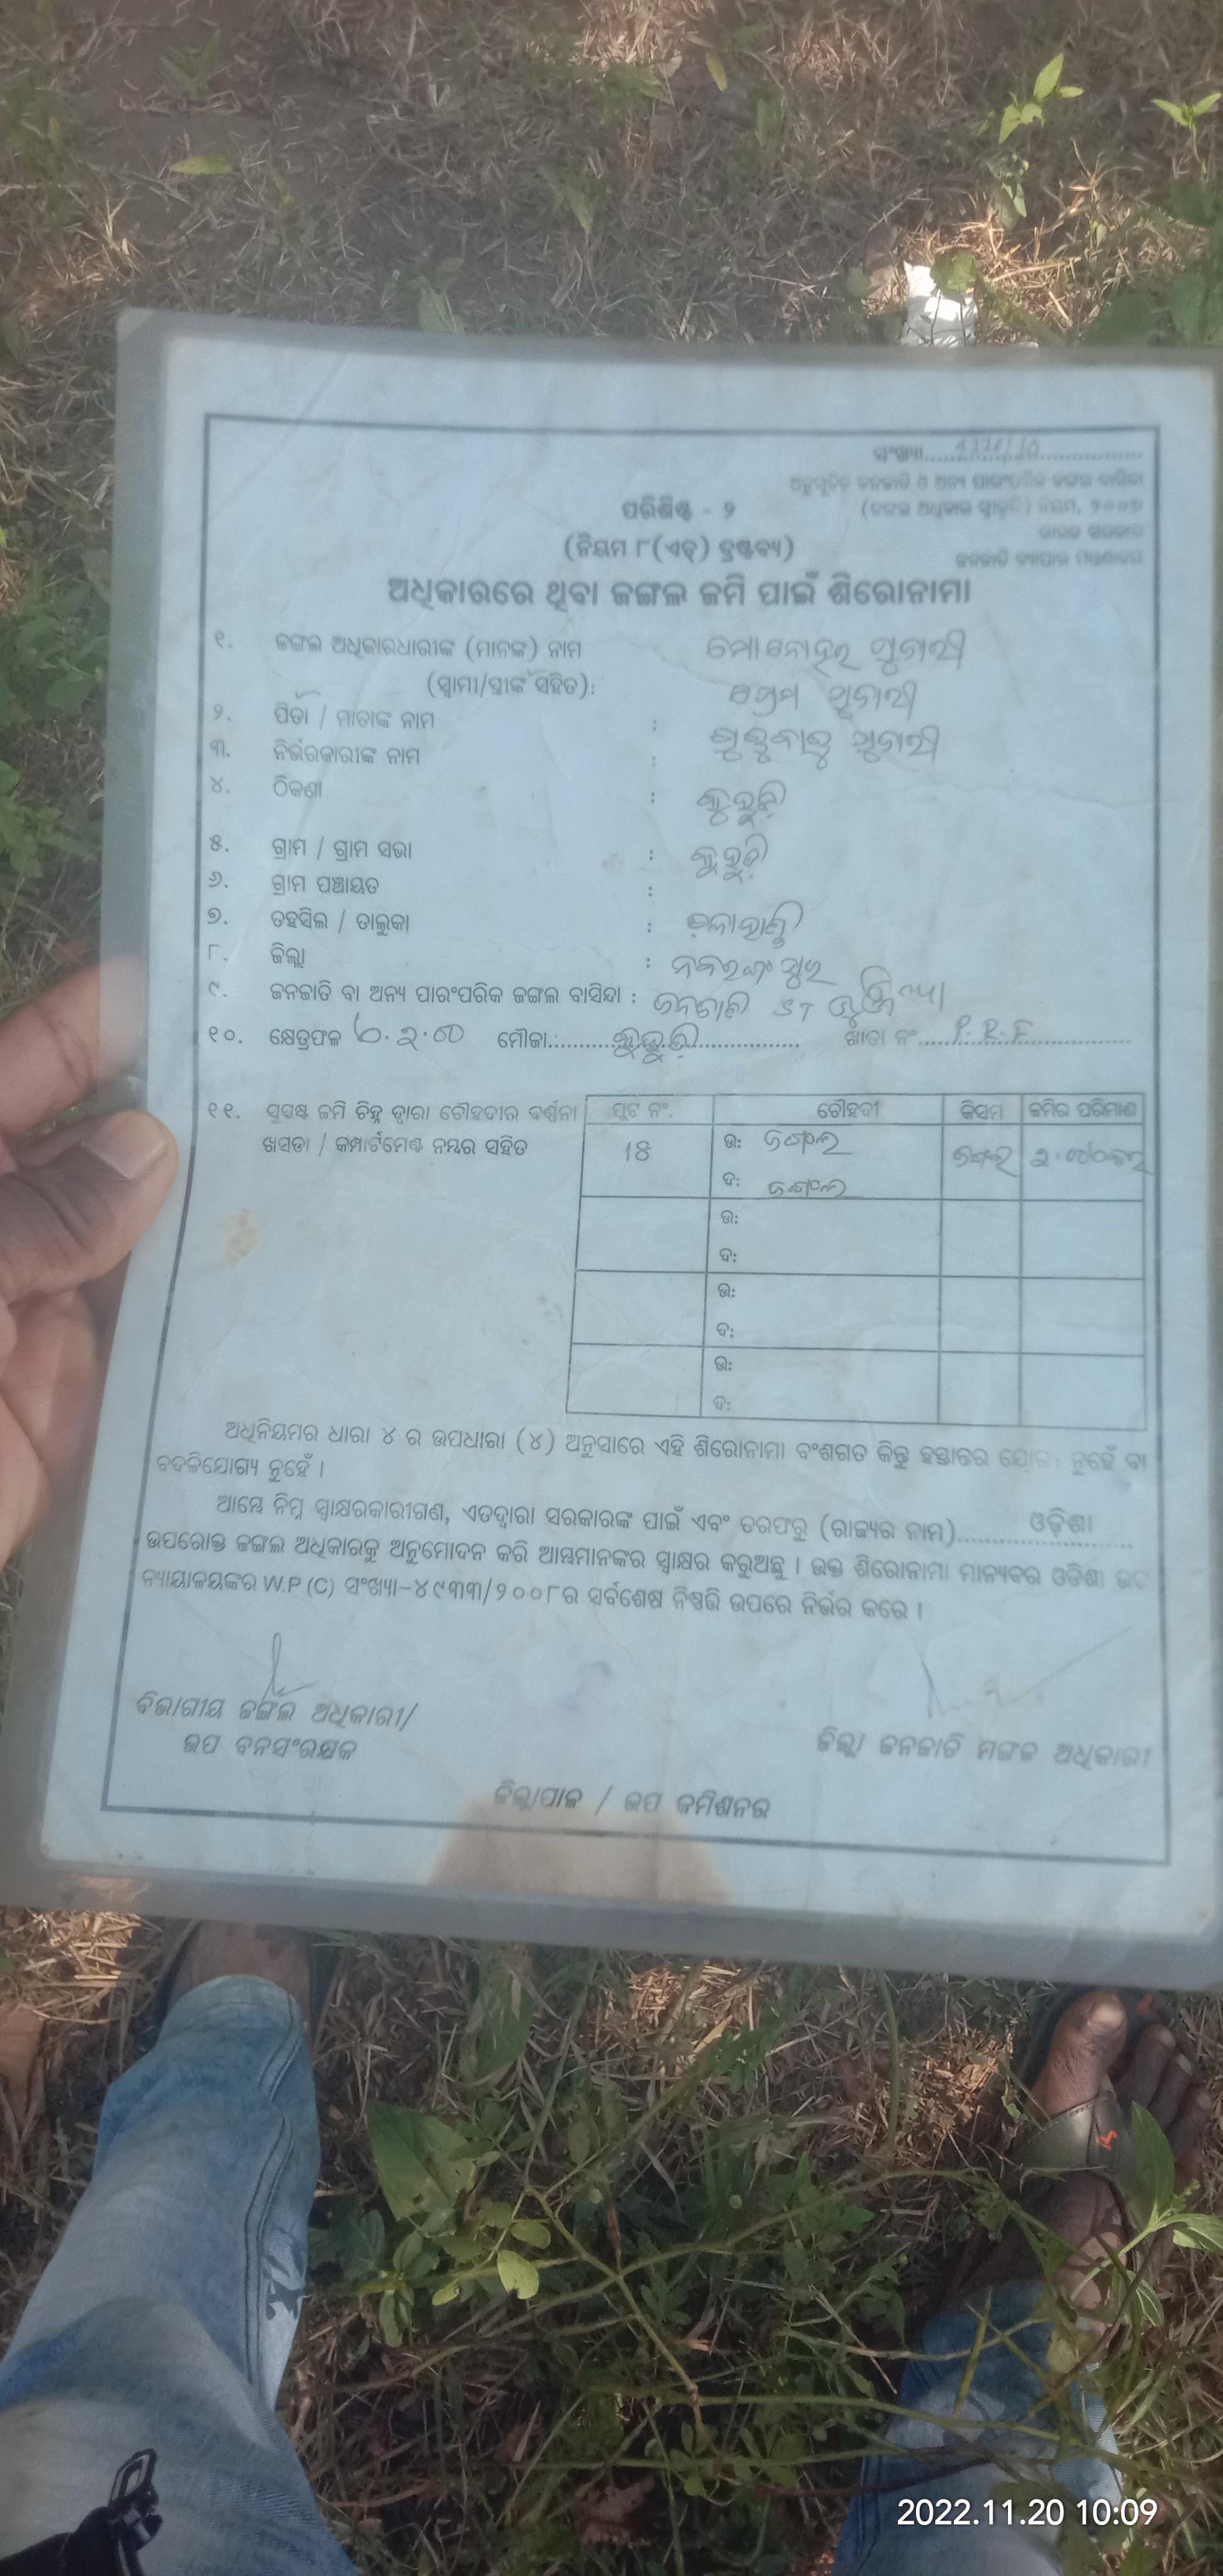 ସଂଖ୍ୟା
ଅନୁସୂଚିତ ଜନଜାତି ଓ ଅନ୍ୟ ପାରଂପରିକ ଜଙ୍ଗଲ ବାସିନ୍ଦା
(ଜଙ୍ଗଲ ଅଧିକାର ସ୍ୱୀକୃତି) ନିୟମ, ୨୦୦୭
ଭାରତ ସରକାର
ଜନଜାତି ବ୍ୟାପାର ମନ୍ତ୍ରଣାଳୟ
ପରିଶିଷ୍ଟ - ୨
(ନିୟମ ୮(ଏଚ୍) ଦ୍ରଷ୍ଟବ୍ୟ)
ଅଧିକାରରେ ଥିବା ଜଙ୍ଗଲ ଜମି ପାଇଁ ଶିରୋନାମା
୧. ଜଙ୍ଗଲ ଅଧିକାରଧାରୀଙ୍କ (ମାନଙ୍କ) ନାମ ମୋନୋହର ପୁଜାରୀ
(ସ୍ୱାମୀ/ସ୍ତ୍ରୀଙ୍କ ସହିତ): ପ୍ରେମ ପୁଜାରୀ
୨. ପିତା / ମାତାଙ୍କ ନାମ : ପୁଜାରୀ
୩. ନିର୍ଭରକାରୀଙ୍କ ନାମ :
୪. ଠିକଣା :
୫. ଗ୍ରାମ / ଗ୍ରାମ ସଭା :
୬. ଗ୍ରାମ ପଞ୍ଚାୟତ :
୭. ତହସିଲ / ତାଲୁକା :
୮. ଜିଲ୍ଲା : ନବରଙ୍ଗପୁର
୯. ଜନଜାତି ବା ଅନ୍ୟ ପାରଂପରିକ ଜଙ୍ଗଲ ବାସିନ୍ଦା : ଜନଜାତି ST
୧୦. କ୍ଷେତ୍ରଫଳ ମୌଜା.: ଖାତା ନଂ P.R.F
୧୧. ସୁସ୍ପଷ୍ଟ ଜମି ଚିହ୍ନ ଦ୍ୱାରା ଚୌହଦୀର ବର୍ଣ୍ଣନା
ଖସଡା / କମ୍ପାର୍ଟମେଣ୍ଟ ନମ୍ବର ସହିତ
ପ୍ଲଟ ନଂ. ଚୌହଦୀ କିସମ ଜମିର ପରିମାଣ
ଉ: ଜଙ୍ଗଲ ଜଙ୍ଗଲ
ଦ: ଜଙ୍ଗଲ
ଉ:
ଦ:
ଉ:
ଦ:
ଉ:
ଦ:
ଅଧିନିୟମର ଧାରା ୪ ର ଉପଧାରା (୪) ଅନୁସାରେ ଏହି ଶିରୋନାମା ବଂଶଗତ କିନ୍ତୁ ହସ୍ତାନ୍ତର ଯୋଗ୍ୟ ନୁହେଁ ବା
ବଦଳିଯୋଗ୍ୟ ନୁହେଁ ।
ଆମ୍ଭେ ନିମ୍ନ ସ୍ୱାକ୍ଷରକାରୀଗଣ, ଏତଦ୍ୱାରା ସରକାରଙ୍କ ପାଇଁ ଏବଂ ତରଫରୁ (ରାଜ୍ୟର ନାମ) ଓଡ଼ିଶା
ଉପରୋକ୍ତ ଜଙ୍ଗଲ ଅଧିକାରକୁ ଅନୁମୋଦନ କରି ଆମ୍ଭମାନଙ୍କର ସ୍ୱାକ୍ଷର କରୁଅଛୁ । ଉକ୍ତ ଶିରୋନାମା ମାନ୍ୟବର ଓଡିଶା ଉଚ୍ଚ
ନ୍ୟାୟାଳୟଙ୍କର W.P (C) ସଂଖ୍ୟା-୪୯୩୩/୨୦୦୮ର ସର୍ବଶେଷ ନିଷ୍ପତ୍ତି ଉପରେ ନିର୍ଭର କରେ ।
ବିଭାଗୀୟ ଜଙ୍ଗଲ ଅଧିକାରୀ/
ଉପ ବନସଂରକ୍ଷକ
ଜିଲ୍ଲା ଜନଜାତି ମଙ୍ଗଳ ଅଧିକାରୀ
ଜିଲ୍ଲାପାଳ / ଉପ କମିଶନର
2022.11.20 10:09